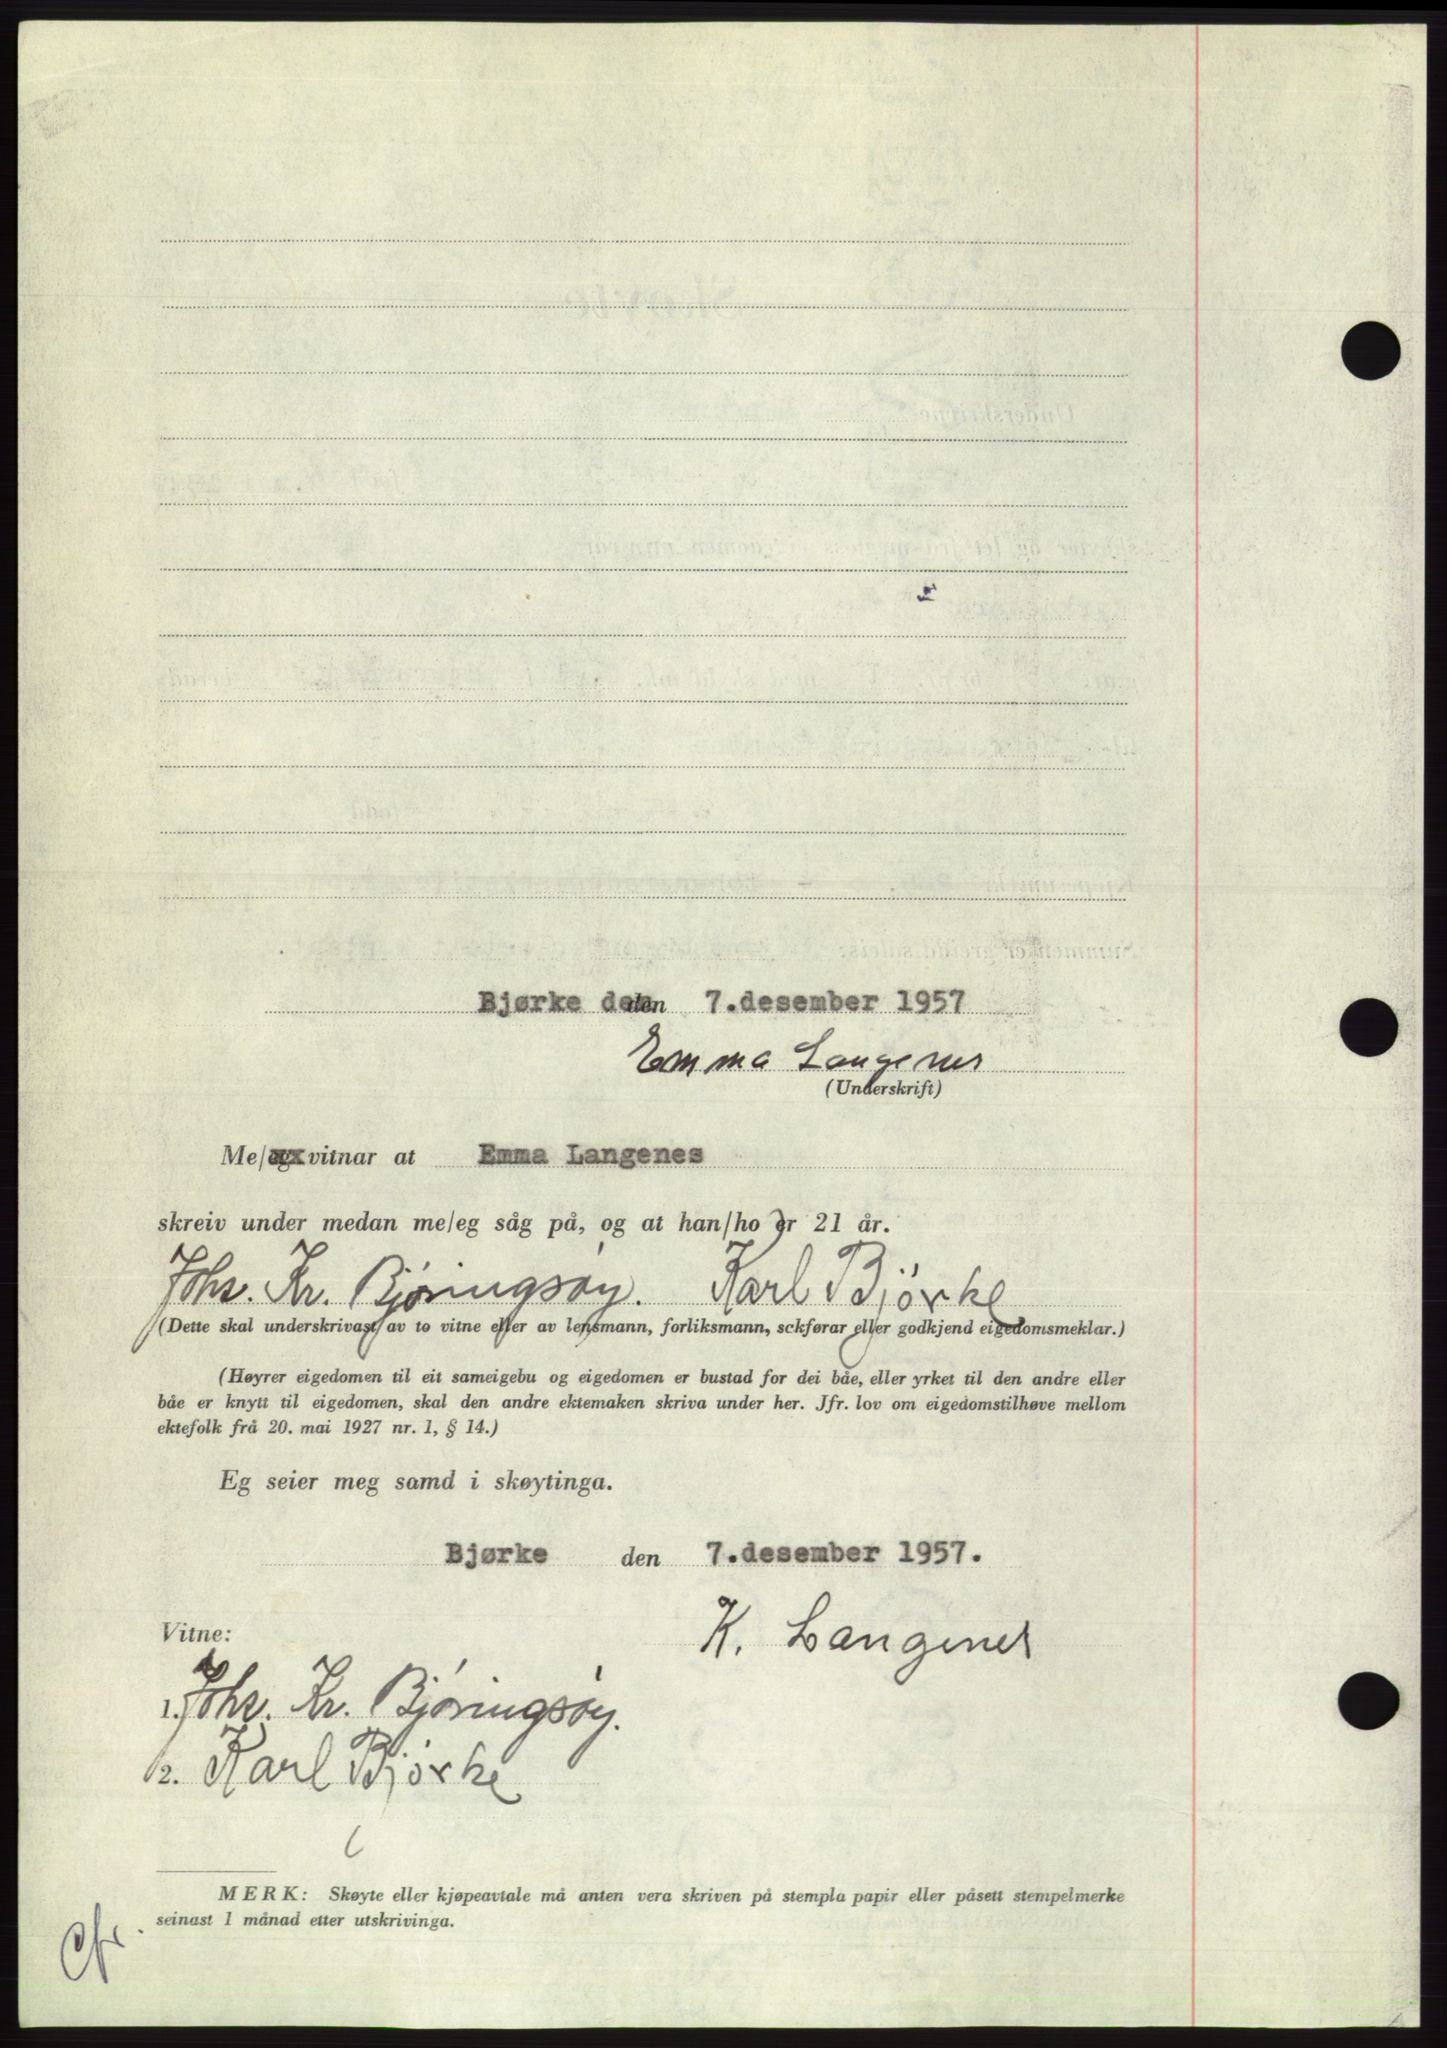 Bjørke den den 7. desember 1957
Emma Langenes
(Underskrift)
Me/xxx vitnar at Emma Langenes
skreiv under medan me/eg såg på, og at han/ho er 21 år.
Johs. Kr. Bjøringsøy. Karl Bjørke
(Dette skal underskrivast av to vitne eller av lensmann, forliksmann, sckførar eller godkjend eigedomsmeklar.)
(Høyrer eigedomen til eit sameigebu og eigedomen er bustad for dei båe, eller yrket til den andre eller
båe er knytt til eigedomen, skal den andre ektemaken skriva under her. Jfr. lov om eigedomstilhøve mellom
ektefolk frå 20. mai 1927 nr. 1, § 14.)
Eg seier meg samd i skøytinga.
Bjørke den 7. desember 1957.
K. Langenes
Vitne:
1. Johs. Kr. Bjøringsøy.
2. Karl Bjørke
MERK: Skøyte eller kjøpeavtale må anten vera skriven på stempla papir eller påsett stempelmerke
seinast 1 månad etter utskrivinga.